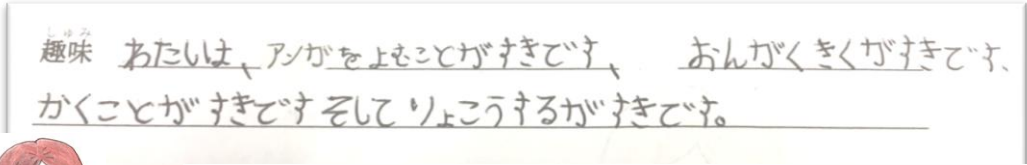 しゅみ
趣味 わたしは、アンがをよむことがすきです、 おんがくきくがすきです、
かくことがすきですそしてりょこうするがすきです。